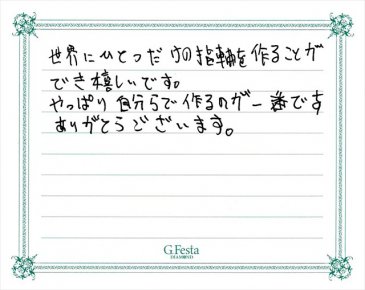 世界にひとつだけの指輪を作ることが
でき嬉しいです。
やっぱり自分らで作るのが一番です
ありがとうございます。
G.Festa
DIAMOND